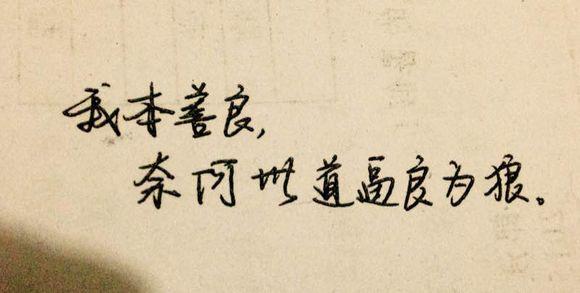 我本善良，
奈何世道逼良为狼。